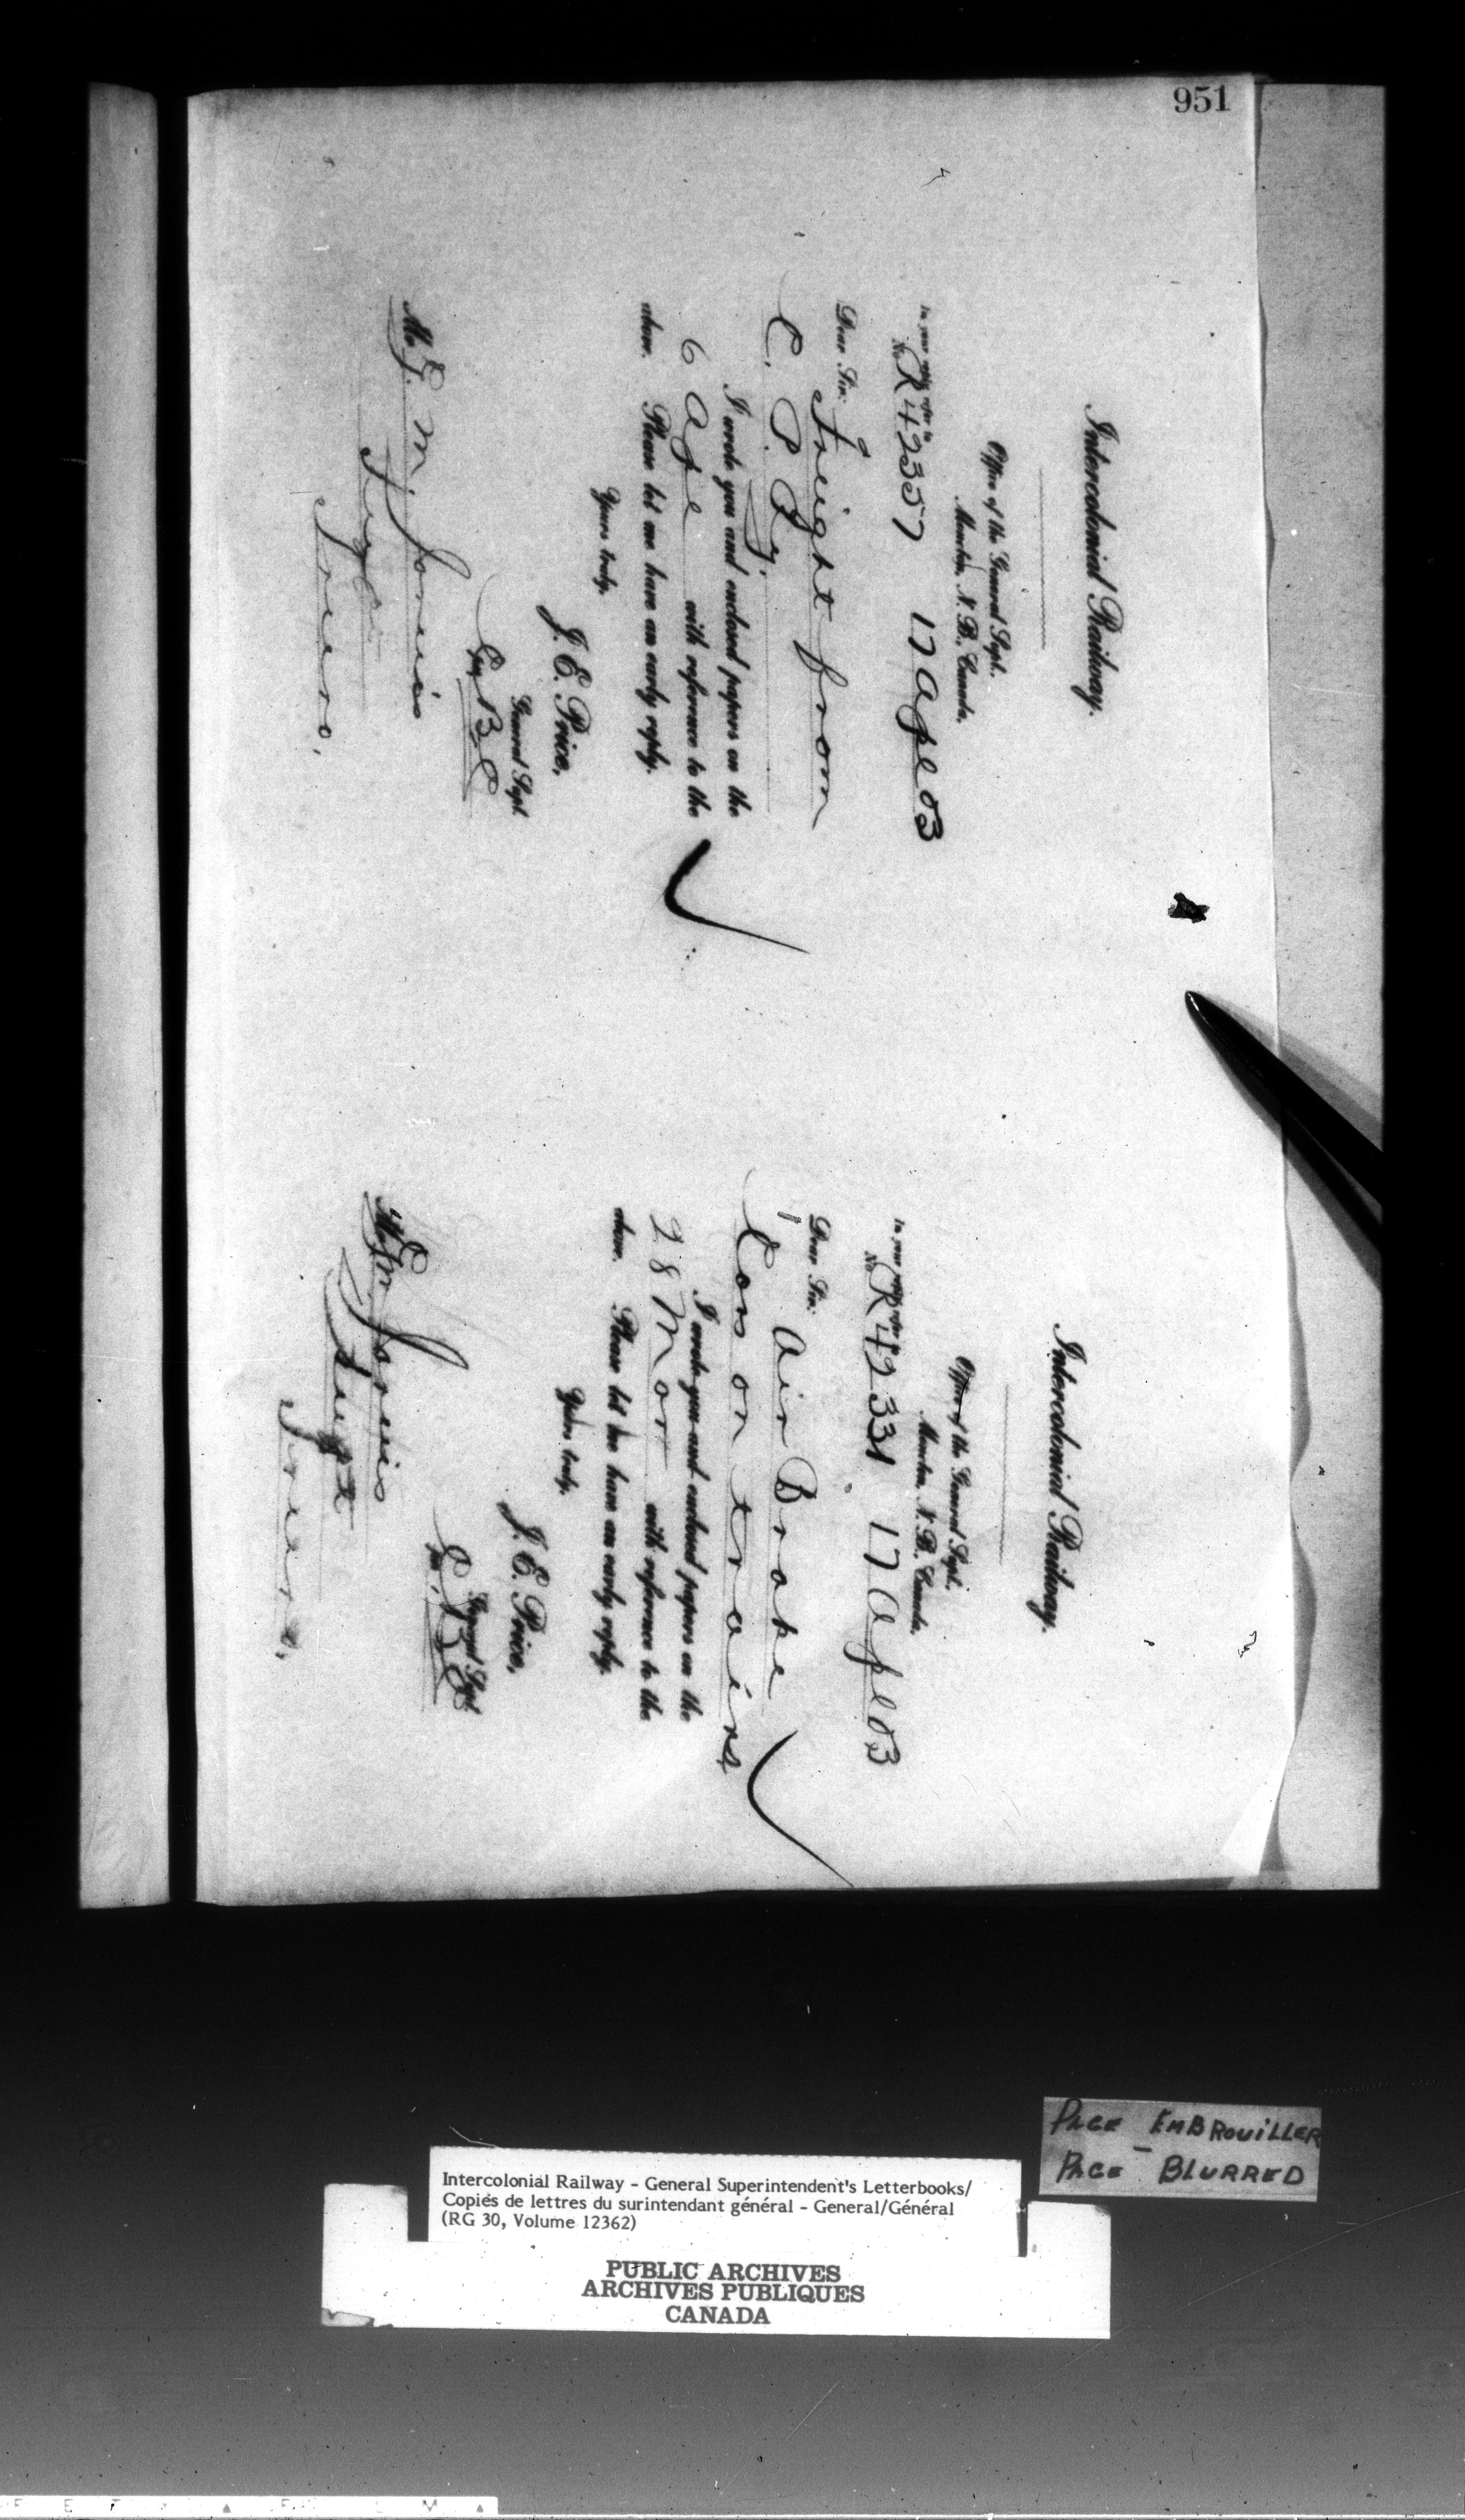 951
Intercolonial Railway.
Office of the General Supt.
Moncton, N. B., Canada,
In your reply refer to
No. R 42357 17 Apl 03
Dear Sir:
Freight from
C. P. Ry.
I wrote you and enclosed papers on the
6 Apl with reference to the
above. Please let me have an early reply.
Yours truly,
J. E. Price,
General Supt.
Per
Mr.
Truro,
Intercolonial Railway.
Office of the General Supt.
Moncton, N. B., Canada,
In your reply refer to
No. R 42331 17 Apl 03
Dear Sir:
Air Brake
Cars on trains
I wrote you and enclosed papers on the
28 Mar with reference to the
above. Please let me have an early reply.
Yours truly,
J. E. Price,
General Supt.
Per
Mr.
Supt
Truro,
PAGE EMBROUILLER
PAGE BLURRED
Intercolonial Railway - General Superintendent's Letterbooks/
Copiés de lettres du surintendant général - General/Général
(RG 30, Volume 12362)
PUBLIC ARCHIVES
ARCHIVES PUBLIQUES
CANADA